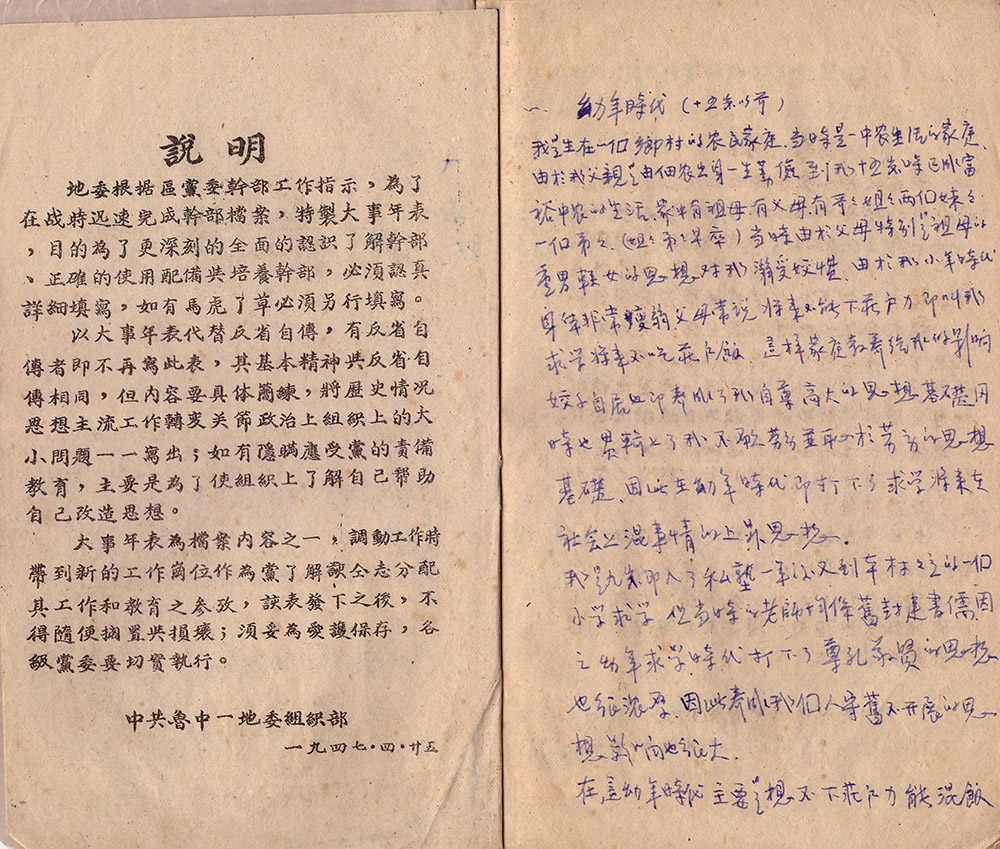 說明
地委根据區黨委幹部工作指示，為了
在战時迅速完成幹部檔案，特製大事年表
，目的為了更深刻的全面的認識了解幹部
、正確的使用配備共培養幹部，必須認真
詳細填寫，如有馬虎了草必須另行填寫。
以大事年表代替反省自傳，有反省自
傳者即不再寫此表，其基本精神共反省自
傳相同，但内容要具体簡練，將歷史情况
思想主流工作轉变关節政治上組織上的大
小問題一一寫出；如有隱瞞應受黨的責備
教育，主要是為了使組織上了解自己帮助
自己改造思想。
大事年表為檔案内容之一，調動工作時
帶到新的工作崗位作為黨了解該仝志分配
其工作和教育之参攷，該表發下之後，不
得隨便搁置共損壞；須妥為愛護保存，各
級黨委要切實執行。
中共魯中一地委組织部
一九四七·四·廿五
一、幼年時代（十五岁以前）
我是生在一個鄉村的农民家庭，当時是一中农生活的家庭，
由於我父親是由佃农出身一生勤儉，到我十五岁時已成富
裕中农的生活，家中有祖母，有父母，有哥々姐々两個妹々
一個弟々，（姐々弟々早卒）当時由於父母特别是祖母的
重男轻女的思想，对我溺受姣慣，由於我小年時代
身体非常瘦弱父母常説将来不能下莊户力即叫我
求学将来不吃莊户飯，這样家庭教養给我的影响
姣子自居也即養成了我自尊高大的思想基礎，因
時也貫輸上了我不願劳动並耻於劳动的思想
基礎，因此在幼年時代即打下了求学将来在
社会上混事情的上昇思想。
我是九岁即入了私塾一年后又到本村之立的一個
小学求学，但当時的老師均係舊封建書儒，因
之幼年求学時代打下了尊孔敬賢的思想
也很浓厚，因此養成我個人守舊不开展的思
想影响也很大。
在這幼年時代主要是想不下莊户力能混飯